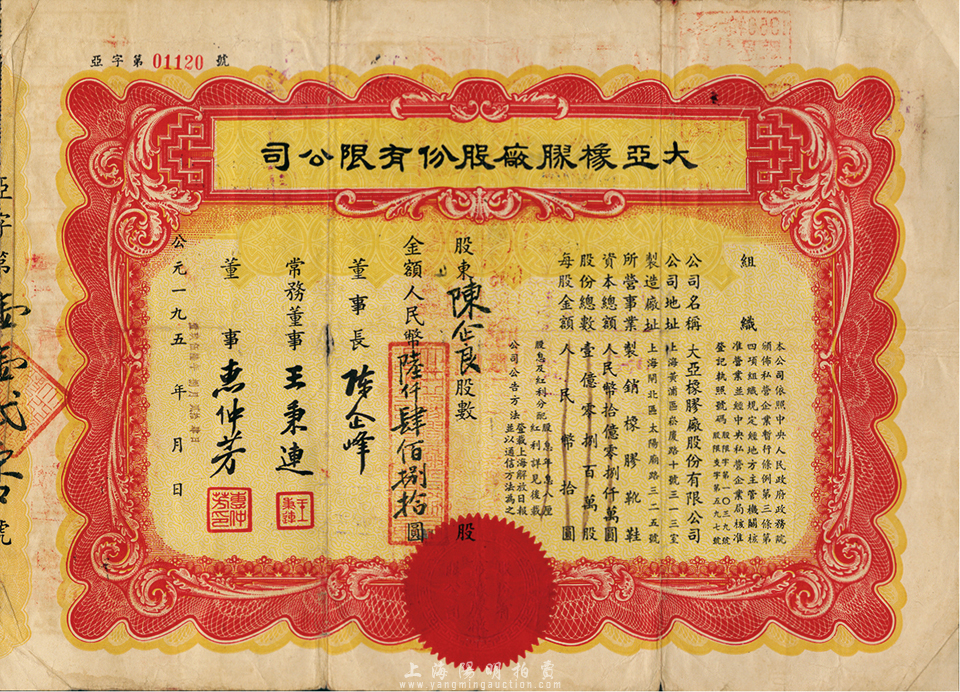 亞字第01120號
大亞橡膠廠股份有限公司
組織
本公司依照中央人民政府政務院
頒佈私營企業暫行條例第三條第
四項組織規定經地方主管機關核
准營業並經中央私營企業局核准
登記執照號碼
公司名稱 大亞橡膠廠股份有限公司
公司地址 上海黃浦區崧厦路十號三一三室
製造廠址 上海閘北區太陽廟路三二五號
所營事業 製銷橡膠靴鞋
資本總額 人民幣拾億零捌仟萬圓
股份總數 壹億零捌百萬股
每股金額 人民幣拾圓
股息及紅利分配 股息年息八釐
紅利詳見後載
公司公告方法 登載上海解放日報
並以通信方法為之
股東 陳企良 股數 股
金額人民幣陸仟肆佰捌拾圓
董事長 陈企峰
常務董事 王秉連
董事 惠仲芳
公元一九五 年 月 日
亞字第壹壹弍零號
上海陽明拍賣
www.yangmingauction.com